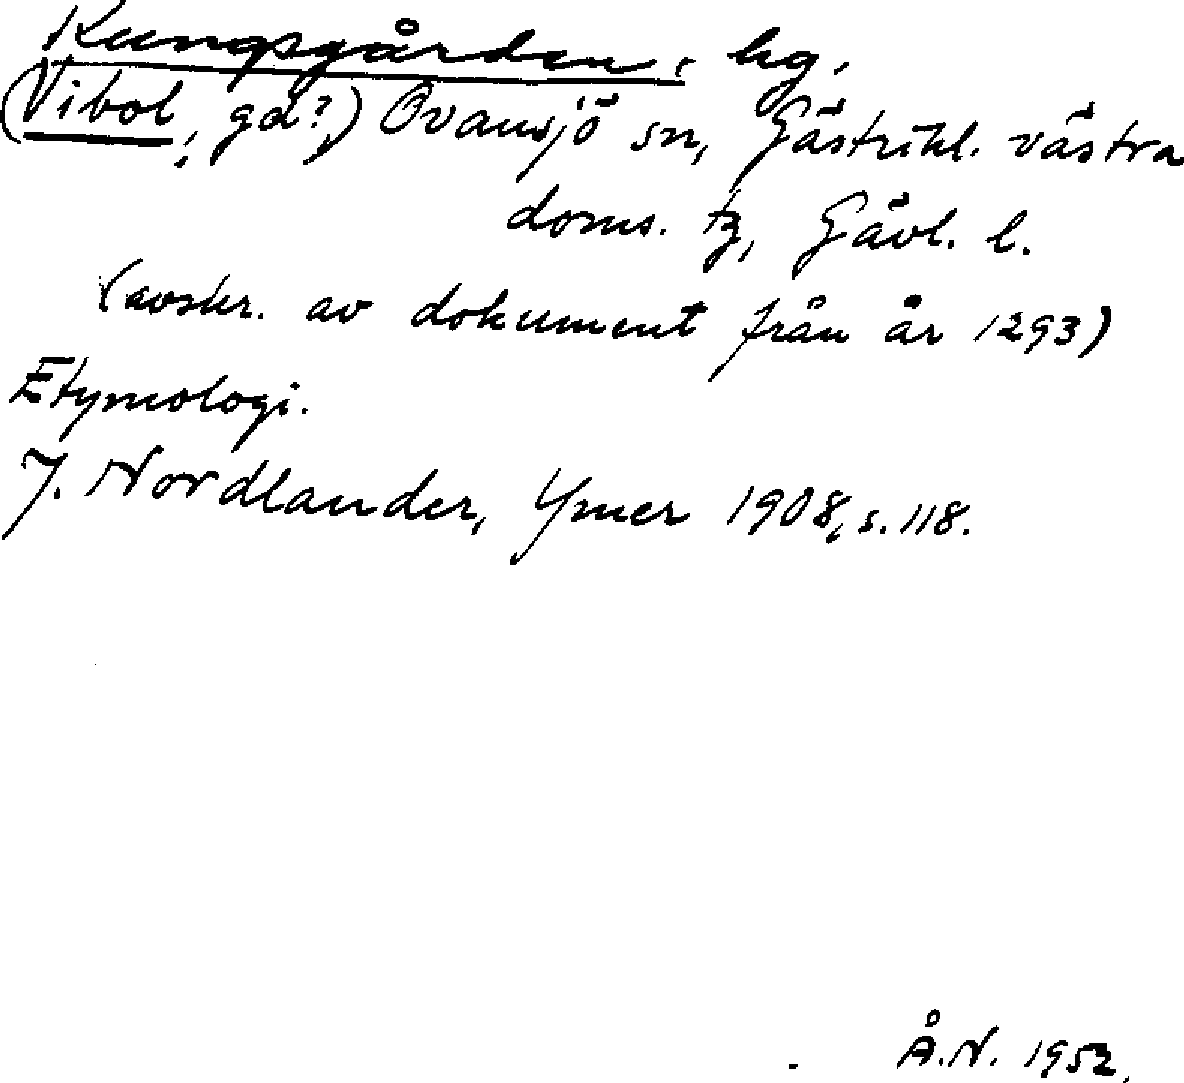 Kungsgården, hg,
(Vibol, gd?,) Ovansjö sn, Gästrikl. västra
doms. tg, Gävl. l.
(avskr. av dokument från år 1293)
Etymologi.
J. Nordlander, Ymer 1908, s. 118.
Å.N. 1952.